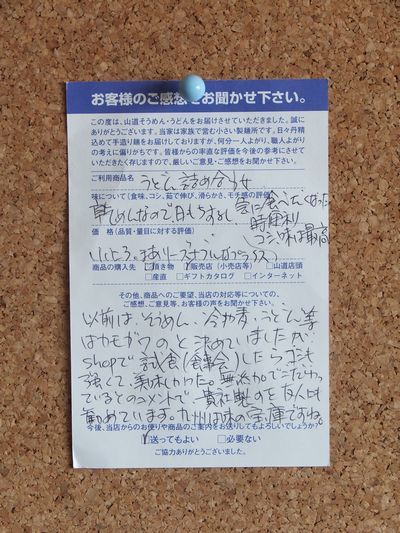 お客様のご感想をお聞かせ下さい。
この度は、山道そうめん・うどんをお届けさせていただきました。誠に
ありがとうございます。当家は家族で営む小さい製麺所です。日々丹精
込めて手造り麺をお届けしておりますが、何分一人よがり、職人よがり
の考えに偏りがちです。皆様からの率直な評価を今後の参考にさせて
いただきたく存じますので、厳しいご意見・ご感想をお聞かせ下さい。
ご利用商品名
うどん 詰め合わせ
味について(食味、コシ、茹で伸び、滑らかさ、モチ感の評価)
乾めんなので、日もちするし 急に食べたくなった
時便利
(コシ、味は最高)
価 格(品質・量目に対する評価)
商品の購入先 ☑頂き物 ☑販売店(小売店等) □山道店頭
□産直 □ギフトカタログ □インターネット
その他、商品へのご要望、当店の対応等についての、
ご感想、ご意見等、お客様の声をお聞かせ下さい。
以前は、そうめん、冷や麦、うどん等
はカモガワのと決めていましたが
shopで 試食(会)したら コシも
強くて、美味しかった。無添加でこだわって
いるとのコメントで、貴社製のを友人にも
勧めています。九州は味の宝庫ですね。
今後、当店からのお便りや商品のご案内をお送りしてもよろしいでしょうか?
☑送ってもよい □必要ない
ご協力ありがとうございました。